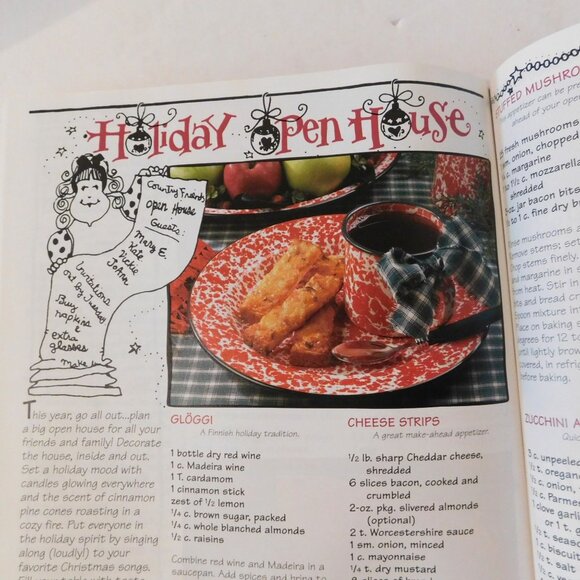 Holiday Open House
Country Friends
open House
Guests:
Mary E.
Kate
Vickie
JoAnn
Invitations
out by Tuesday
Buy
napkins
&
extra
glasses
make
This year, go all out...plan
a big open house for all your
friends and family! Decorate
the house, inside and out.
Set a holiday mood with
candles glowing everywhere
and the scent of cinnamon
pine cones roasting in a
cozy fire. Put everyone in
the holiday spirit by singing
along (loudly!) to your
favorite Christmas songs.
GLÖGGI
A Finnish holiday tradition.
1 bottle dry red wine
1 c. Madeira wine
1 T. cardamom
1 cinnamon stick
zest of 1/2 lemon
1/4 c. brown sugar, packed
1/4 c. whole blanched almonds
1/2 c. raisins
Combine red wine and Madeira in a
saucepan. Add spices and bring to
CHEESE STRIPS
A great make-ahead appetizer.
1/2 lb. sharp Cheddar cheese,
shredded
6 slices bacon, cooked and
crumbled
2-oz. pkg. slivered almonds
(optional)
2 t. Worcestershire sauce
1 sm. onion, minced
1 c. mayonnaise
1/4 t. dry mustard
MUSHRO
appetizer can be pre
ahead of your ope
fresh mushrooms
onion, chopped
c. margarine
1/2 c. mozzarella
shredded
oz. jar bacon bits
to 1 c. fine dry br
mushrooms a
remove stems; se
Chop stems finely.
margarine in s
from heat. Stir in
and bread cr
mixture into
Place on baking
degrees for 12 t
until lightly brown
covered, in refri
before baking.
ZUCCHINI A
Quic
3 c. unpeele
1/2 t. oregan
1/2 c. onion,
c. Parme
1 clove garlic
or 1 t. g
1/2 c. seaso
1 c. biscuit
1/2 t. salt